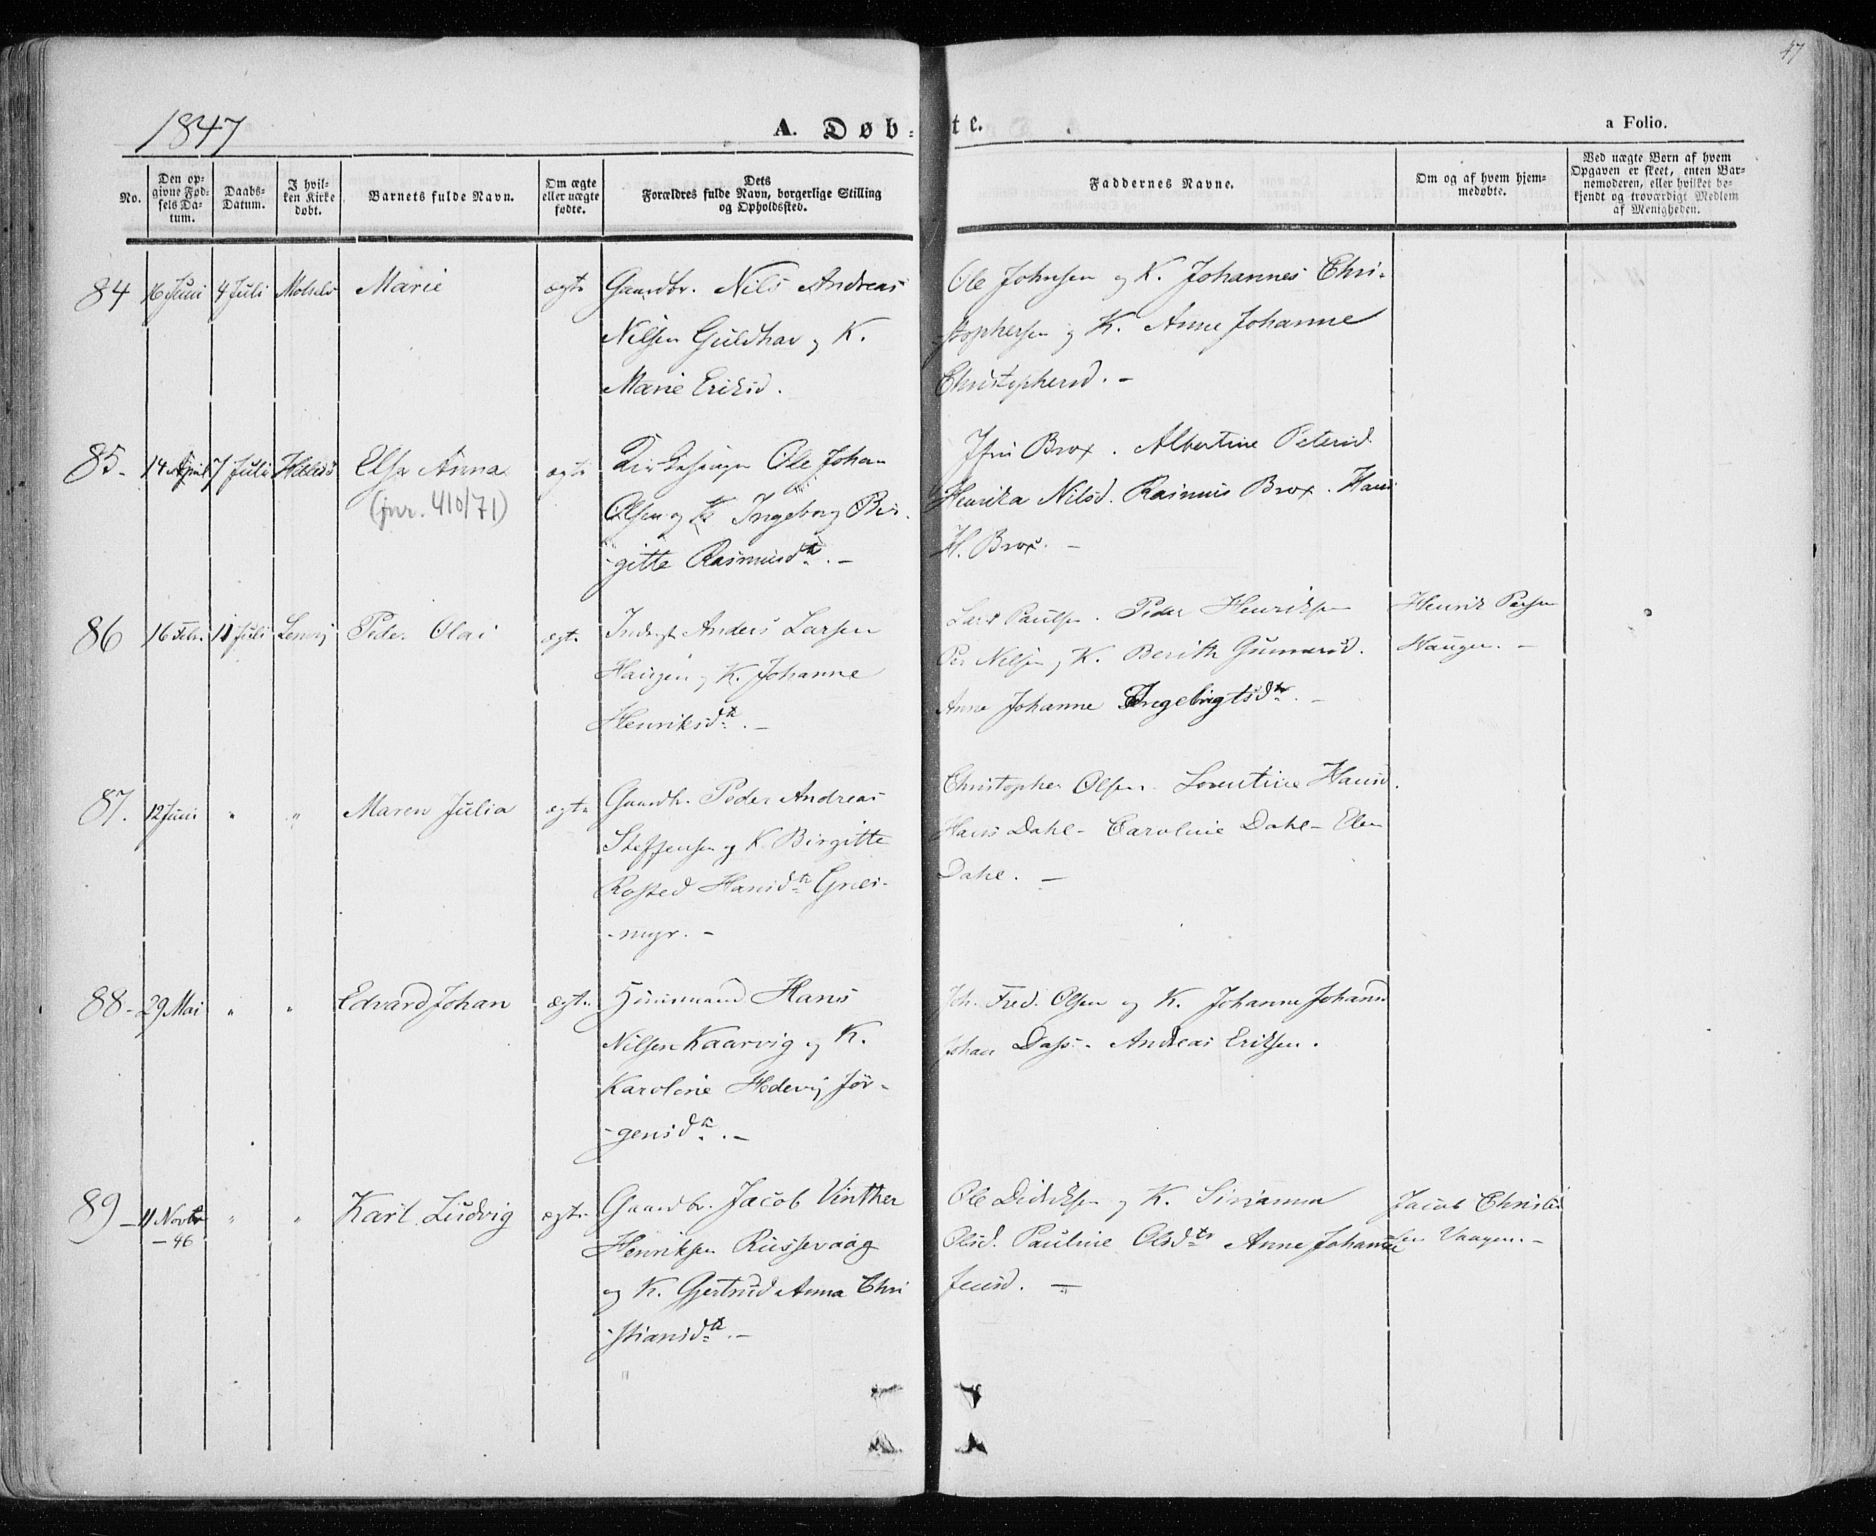 47
1847
A. Døb-te.
a Folio.
No.
Den op-
givne Fød-
sels Da-
tum.
Daabs-
Datum.
I hvil-
ken Kirke
døbt.
Barnets fulde Navn.
Om ægte
eller uægte
fødte.
Dets
Forældres fulde Navn, borgerlige Stilling
og Opholdssted.
Faddernes Navne.
Om og af hvem hjem-
medøbte.
Ved uægte Børn af hvem
Opgaven er skeet, enten Bar-
nemoderen, eller hvilket be-
kjendt og troværdigt Medlem
af Menigheden.
84 16 Juni 4 Juli Maalselv Marie ægte
Gaardbr. Nils Andreas
Nilsen Guldhav og K.
Marie Eriksd.
Ole Johnsen og K. Johannes Chri-
stophersen og K. Anne Johanne
Christophersd. -
85- 14 April 7 Juli Elsa Anna ægte
(jnr. 410/71)
Kirkesanger Ole Johan
Olsen og K Ingeborg Bir-
gitte Rasmusdtr. -
Jfru Brox. Albertine Petersd.
Henrika Nilsd. Rasmus Brox. Hans
H. Brox. -
86 16 Febr. 11 Juli Lenvig Peder Olai ægte
Inderst Anders Larsen
Haugen og K. Johanne
Henriksdtr. -
Lars Paulsen. Peder Henriksen
Per Nilsen og K. Berith Gunnersd.
Anne Johanne Ingebrigtsdtr. -
Henrik Persen
Haugen. -
87. 12 Juni " " Maren Julia ægte
Gaardbr. Peder Andreas
Steffensen og K. Birgitte
Rosted Hansdtr Gries-
-myr. -
Christopher Olsen. Lorentine Hansd.
Hans Dahl - Caroline Dahl - Elen
Dahl. -
88- 29 Mai " " Edvard Johan ægte
Huusmand Hans
Nilsen Kaarvig og K.
Karoline Hedevig Jør-
-gensdtr. -
Joh. Fred. Olsen og K. Johanne Johansd
Johan Dass - Andreas Eriksen.
89- 11 Novbr " " Karl Ludvig ægte
- 46
Gaardbr. Jacob Vinther
Henriksen Russevaag
og K. Gjertrud Anna Chri
-stiansdtr. -
Ole Didriksen og K. Sirianna
Olsd. Pauline Olsdtr Anne Johanne
Jensd. -
Jacob Christia
sen Vaagen. -